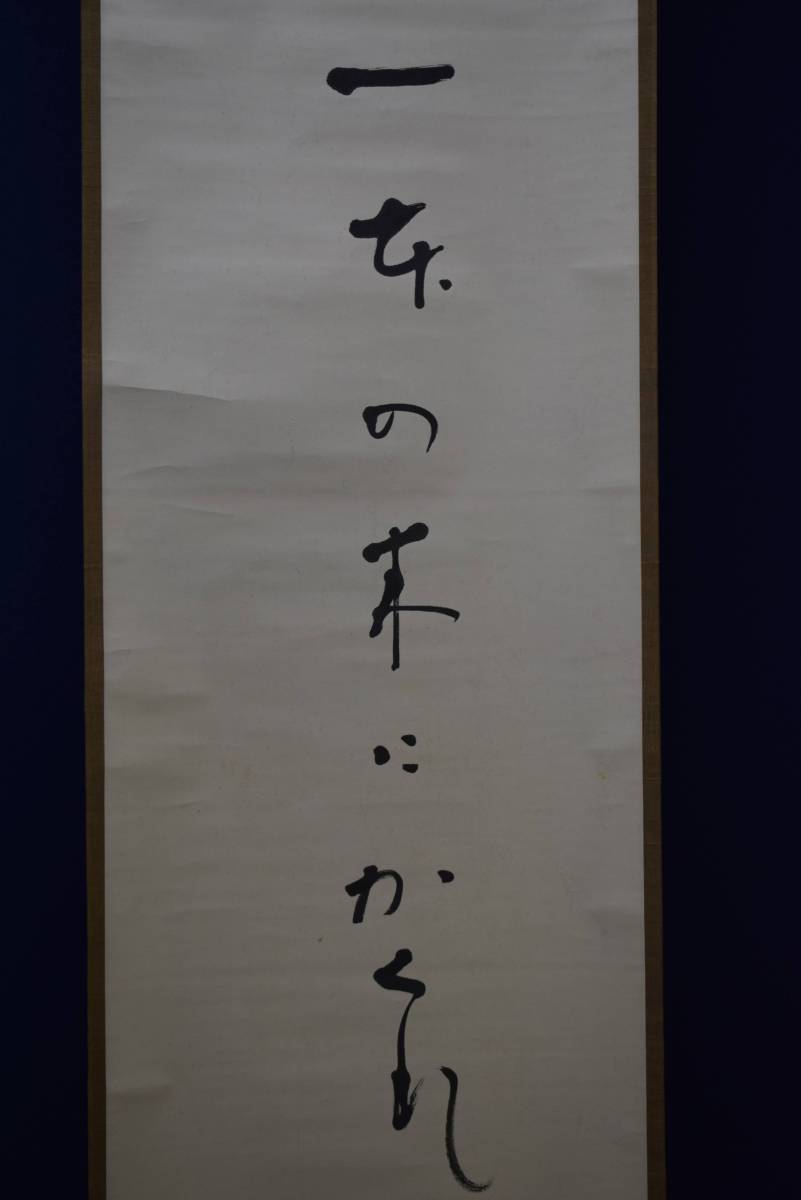 一本の にかくれ